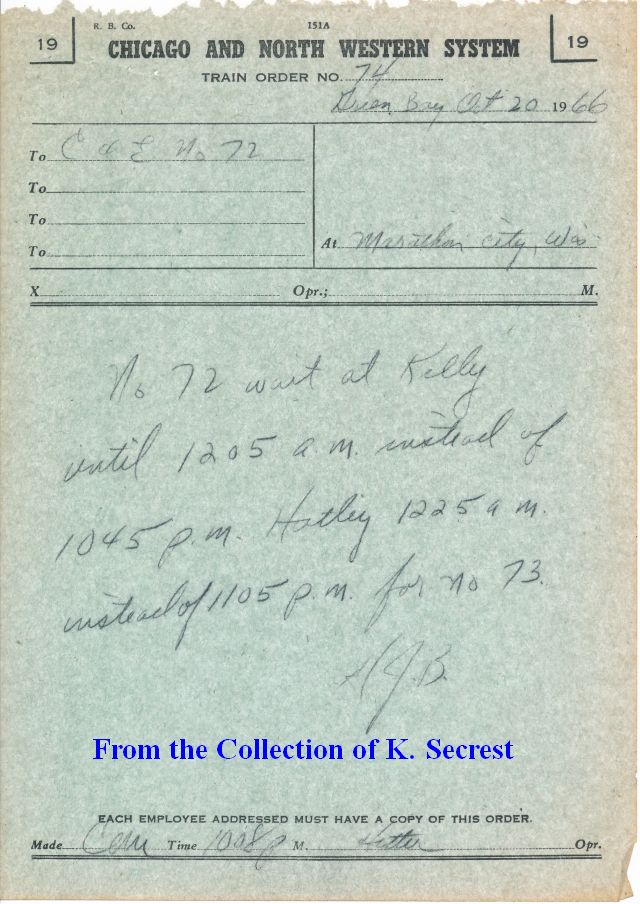 R. B. Co. 151A
19 CHICAGO AND NORTH WESTERN SYSTEM 19
TRAIN ORDER NO. 74
Green Bay Oct 20 1966
To C & E No 72
To
To
To
At Marathon City, Wis
X Opr.; M.
No 72 wait at Kelly
until 1205 a.m. instead of
1045 p.m. Hatley 1225 a m.
instead of 1105 p.m. for No 73.
H.J.B.
From the Collection of K. Secrest
EACH EMPLOYEE ADDRESSED MUST HAVE A COPY OF THIS ORDER.
Made Com Time 1008p M. Opr.